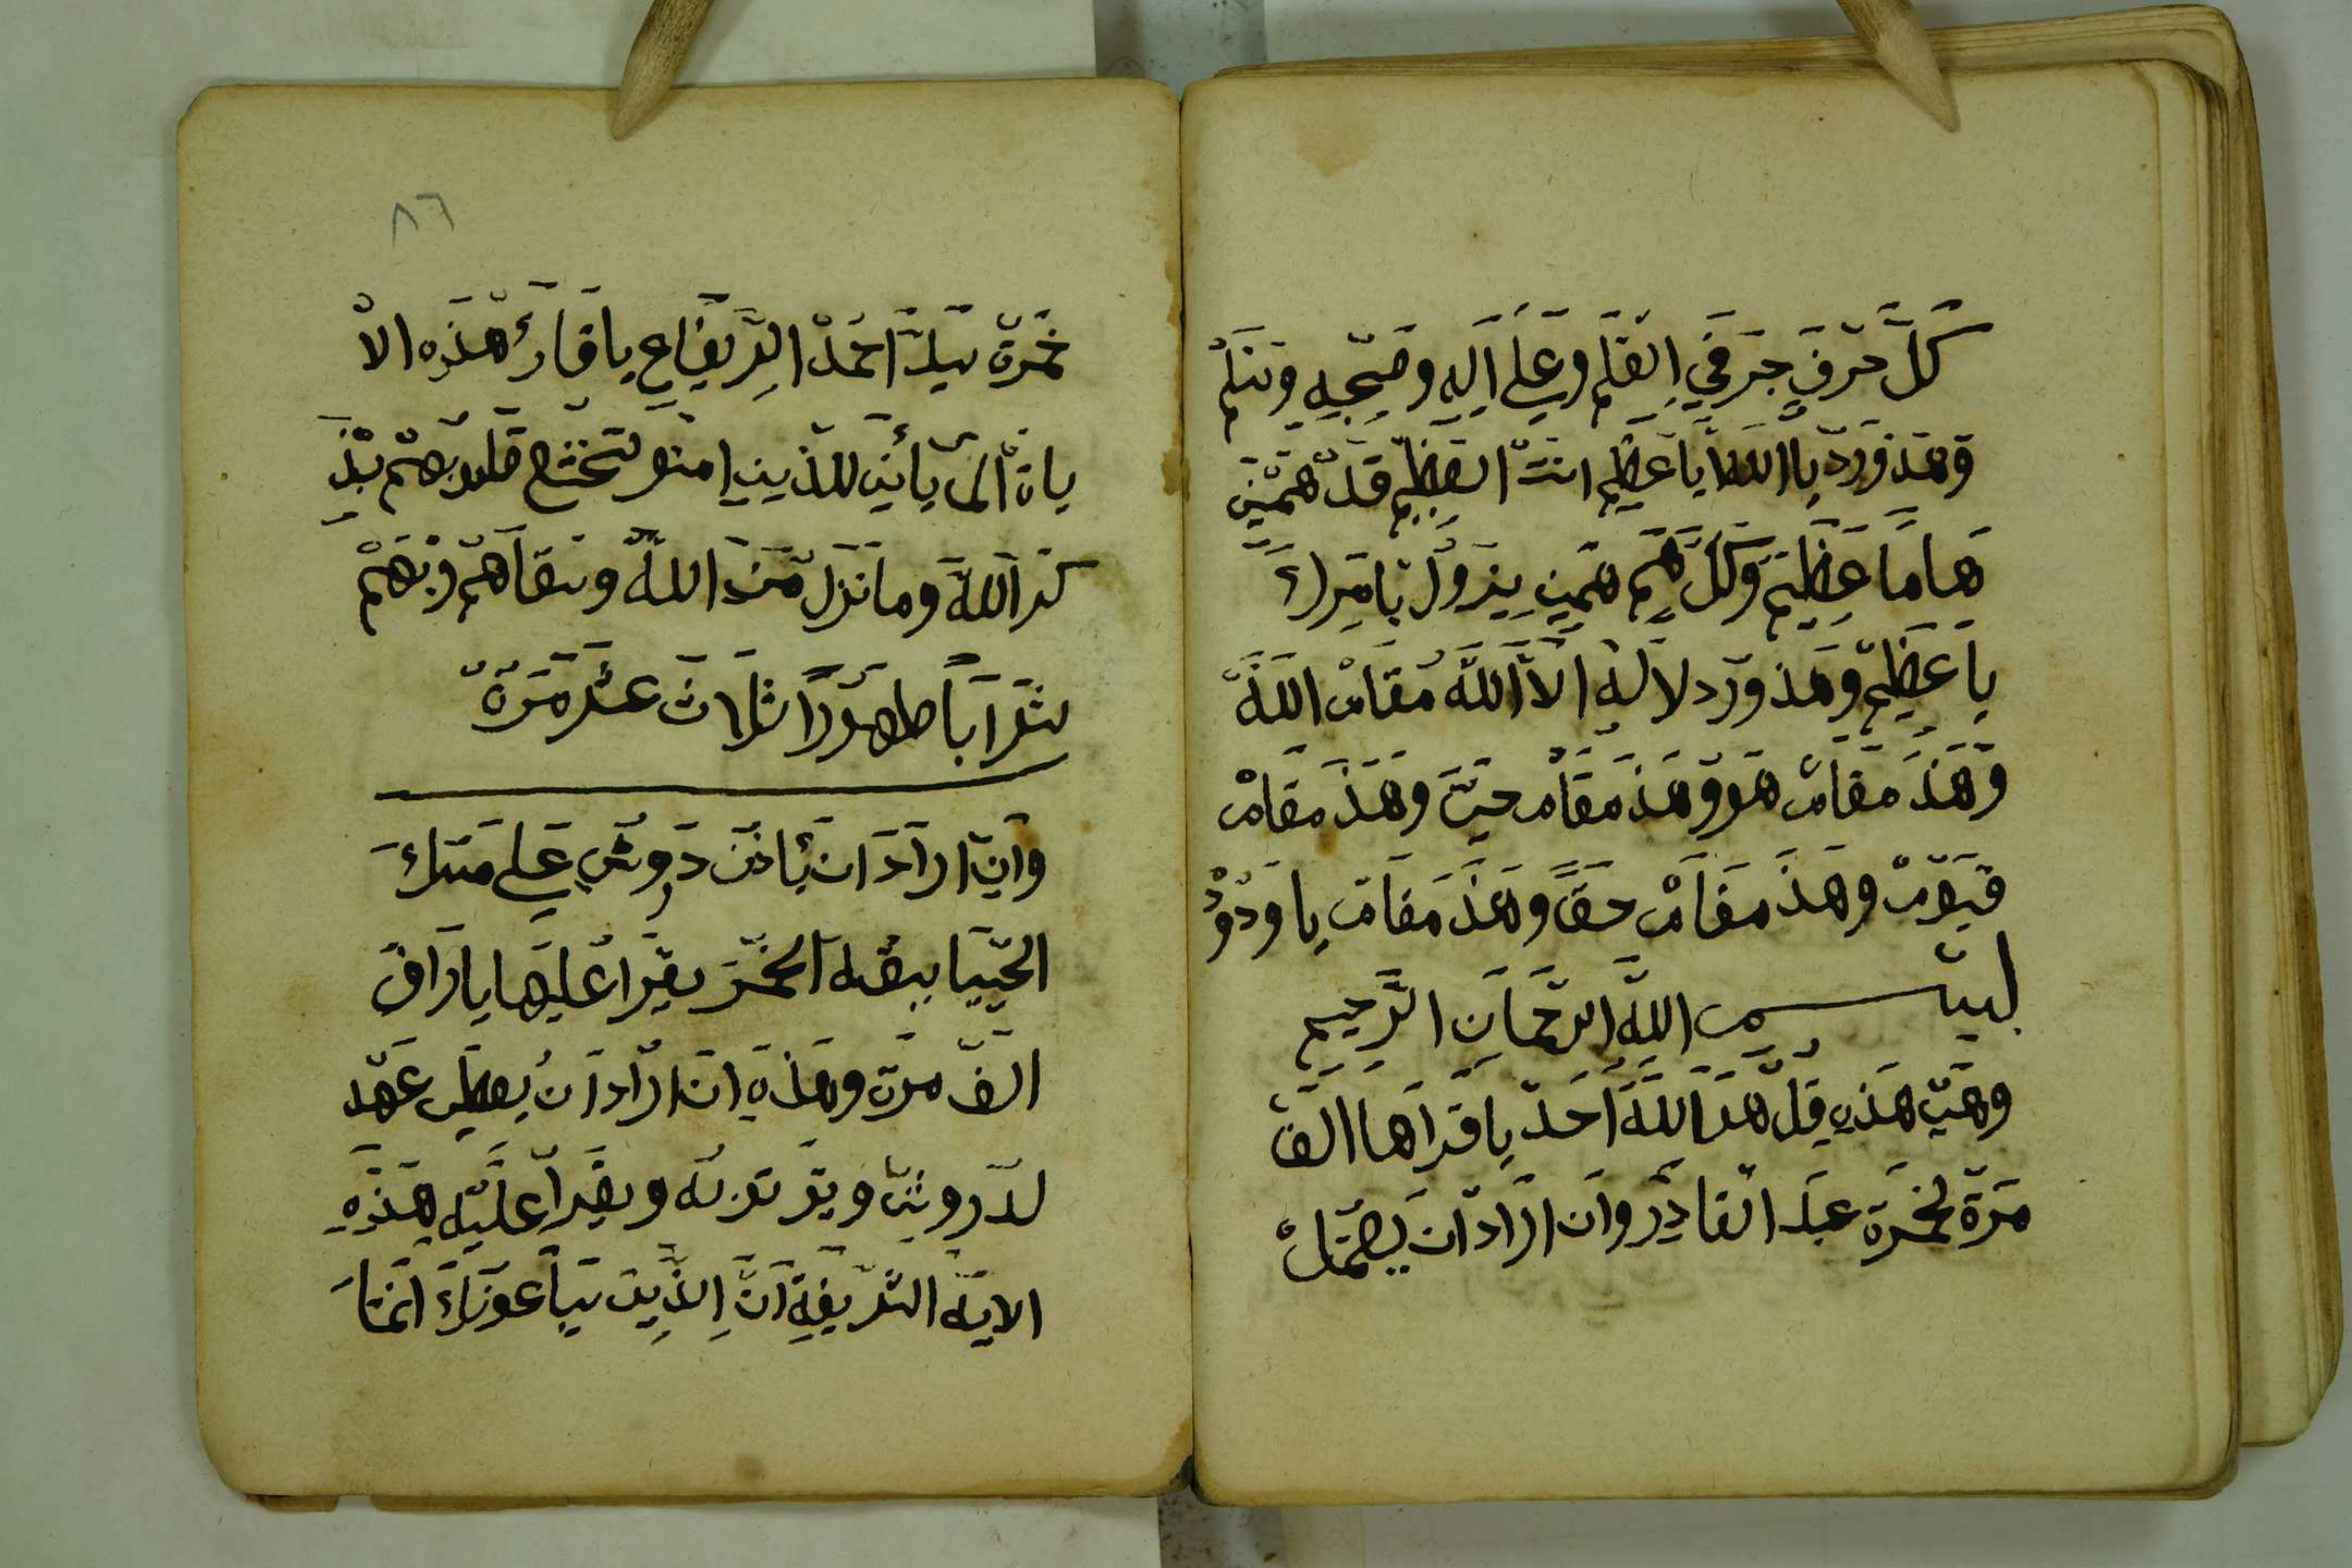 كل حرف جر في القلم وعلى اله وصحبه وسلم
وهذ ورد يا الله يا عظيم انت العظيم قد همني
هاما عظيم وكل هم همني يزول بامرك
يا عظيم وهذ ورد لا له الا الله مقام الله
وهذ مقام هو وهذ مقام حي وهذ مقام
قيوم وهذ مقام حق وهذ مقام يا ودود
بسم الله الرحمان الرحيم
وهي هذه قل هو الله احد يا قراها الف
مرة لخمرة عبد القادر وان اراد ان يعمل
٨٦
خمرة سيد احمد الريفاع يا قارئ هذه الا
ياة الم يأني للذين امنو لتخشع قلوبهم بذ
كر الله وما نزل من الله وسقاهم ربهم
شرابا طهورا ثلاث عشر مرة
وان اراد ان يأذن دوش على مسك
الحييا بيقله الخمر يقرا عليها يا رزاق
الف مرة وهذه ان اراد ان يعطي عهد
لدرويش ويقرا عليه هذه
الايه الشريفة ان الذين يبايعونك انما